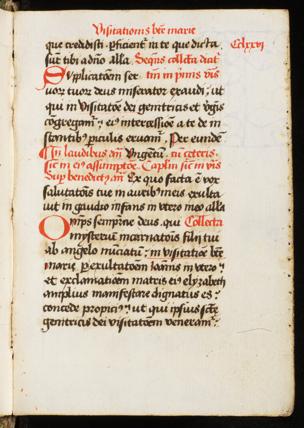 Visitationis bte marie
que credidisti. pficient in te que dicta Cclxxvi
sūt tibi a dnō alla. Seqūs collecta dicat̄
Supplicatōem ser tm in primis vis
uor tuor deus miserator exaudi: ut
qui in visitatōe dei genitricis et vgīs
cōgregamr: eiᵒ intercessiōe a te de in
stantibᵒ piculis eruamr. Per eundē
In laudibus an̄ Ungētū. cū ceteris
sic in eis assumptōe. Caplm sic in vis
Sup benedictᵒ an̄ Ex quo facta ē vox
salutatōis tue in aurib meis exulta
uit in gaudio infans in utero meo alla
Omps sempitne deus. qui Collecta
mysteriū incarnatōis filii tui
ab angelo iniciatū: in visitatiōe bte
marie p exultatōem ioānis in utero
et exclamatiōem matris eiᵒ elyzabeth
amplius manifestare dignatus es:
concede propiciᵒ: ut qui ipsius scte
genitricis dei visitatōem veneramr: